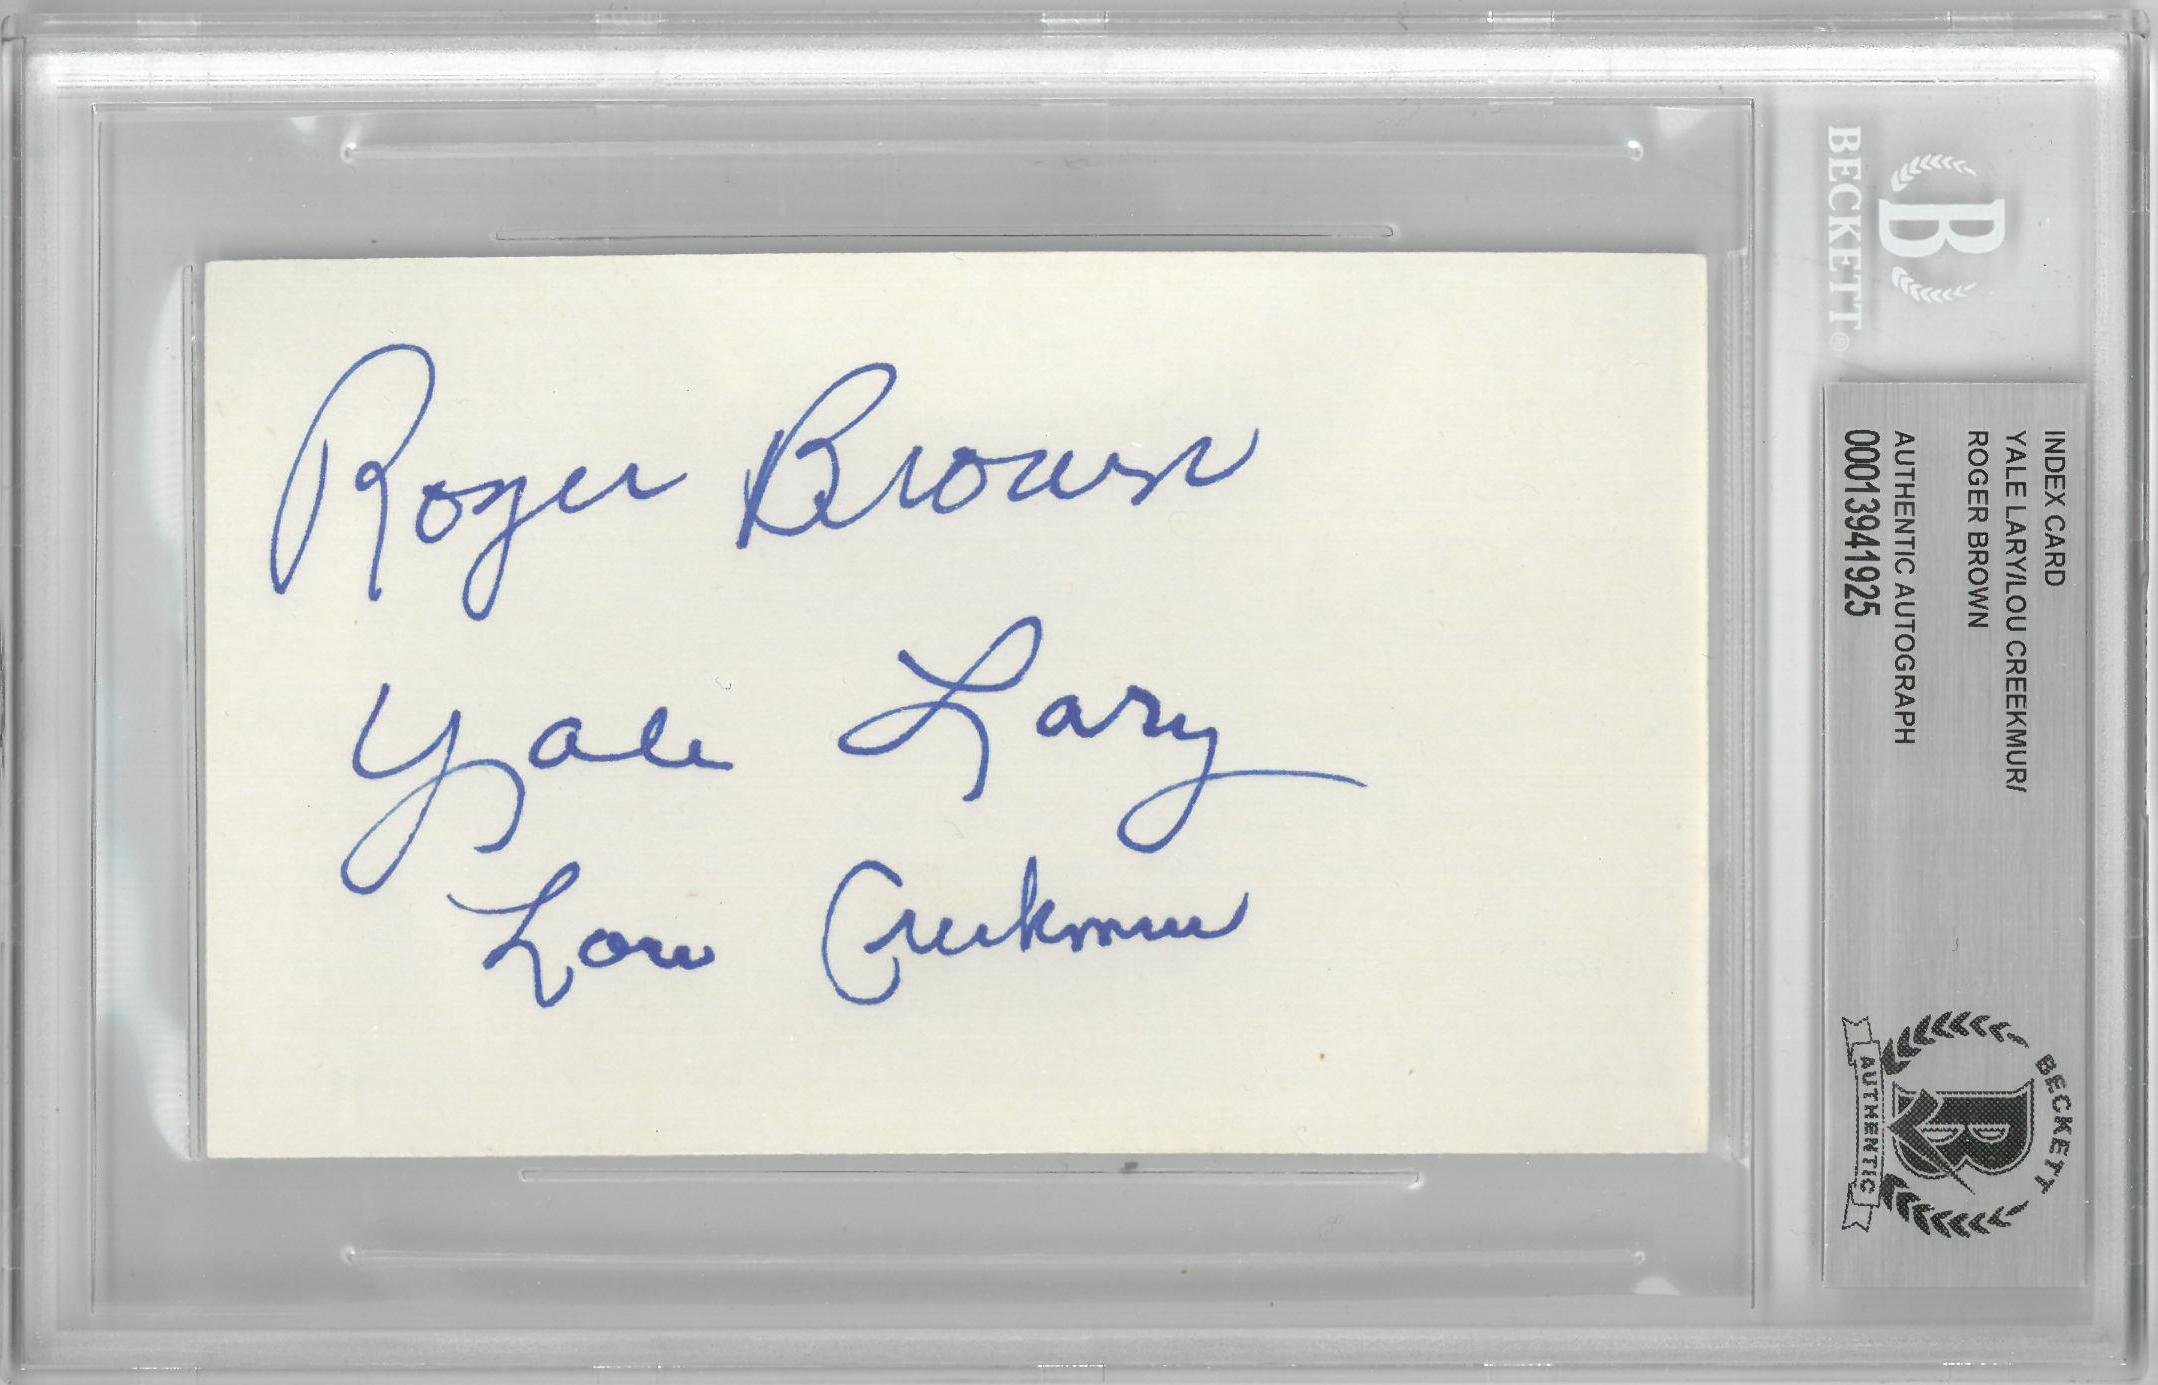 Roger Brown
Yale Lary
Lou Creekmur
BECKETT®
B
INDEX CARD
YALE LARY/LOU CREEKMUR/
ROGER BROWN
AUTHENTIC AUTOGRAPH
00013941925
BECKETT
B
AUTHENTIC